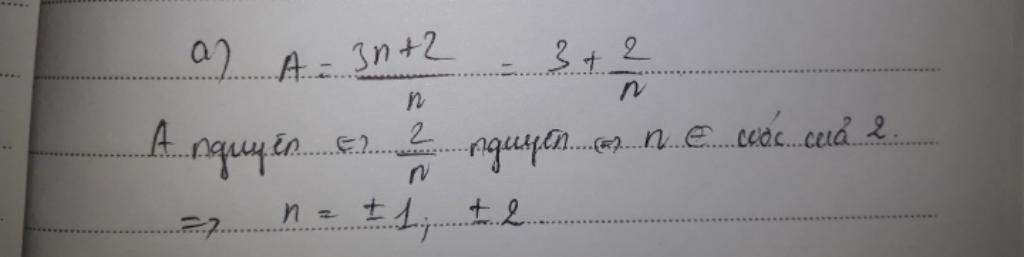 a) A = 3n+2/n = 3 + 2/n
A nguyên ⇔ 2/n nguyên ⇔ n ∈ ước của 2.
=> n = ±1; ±2.